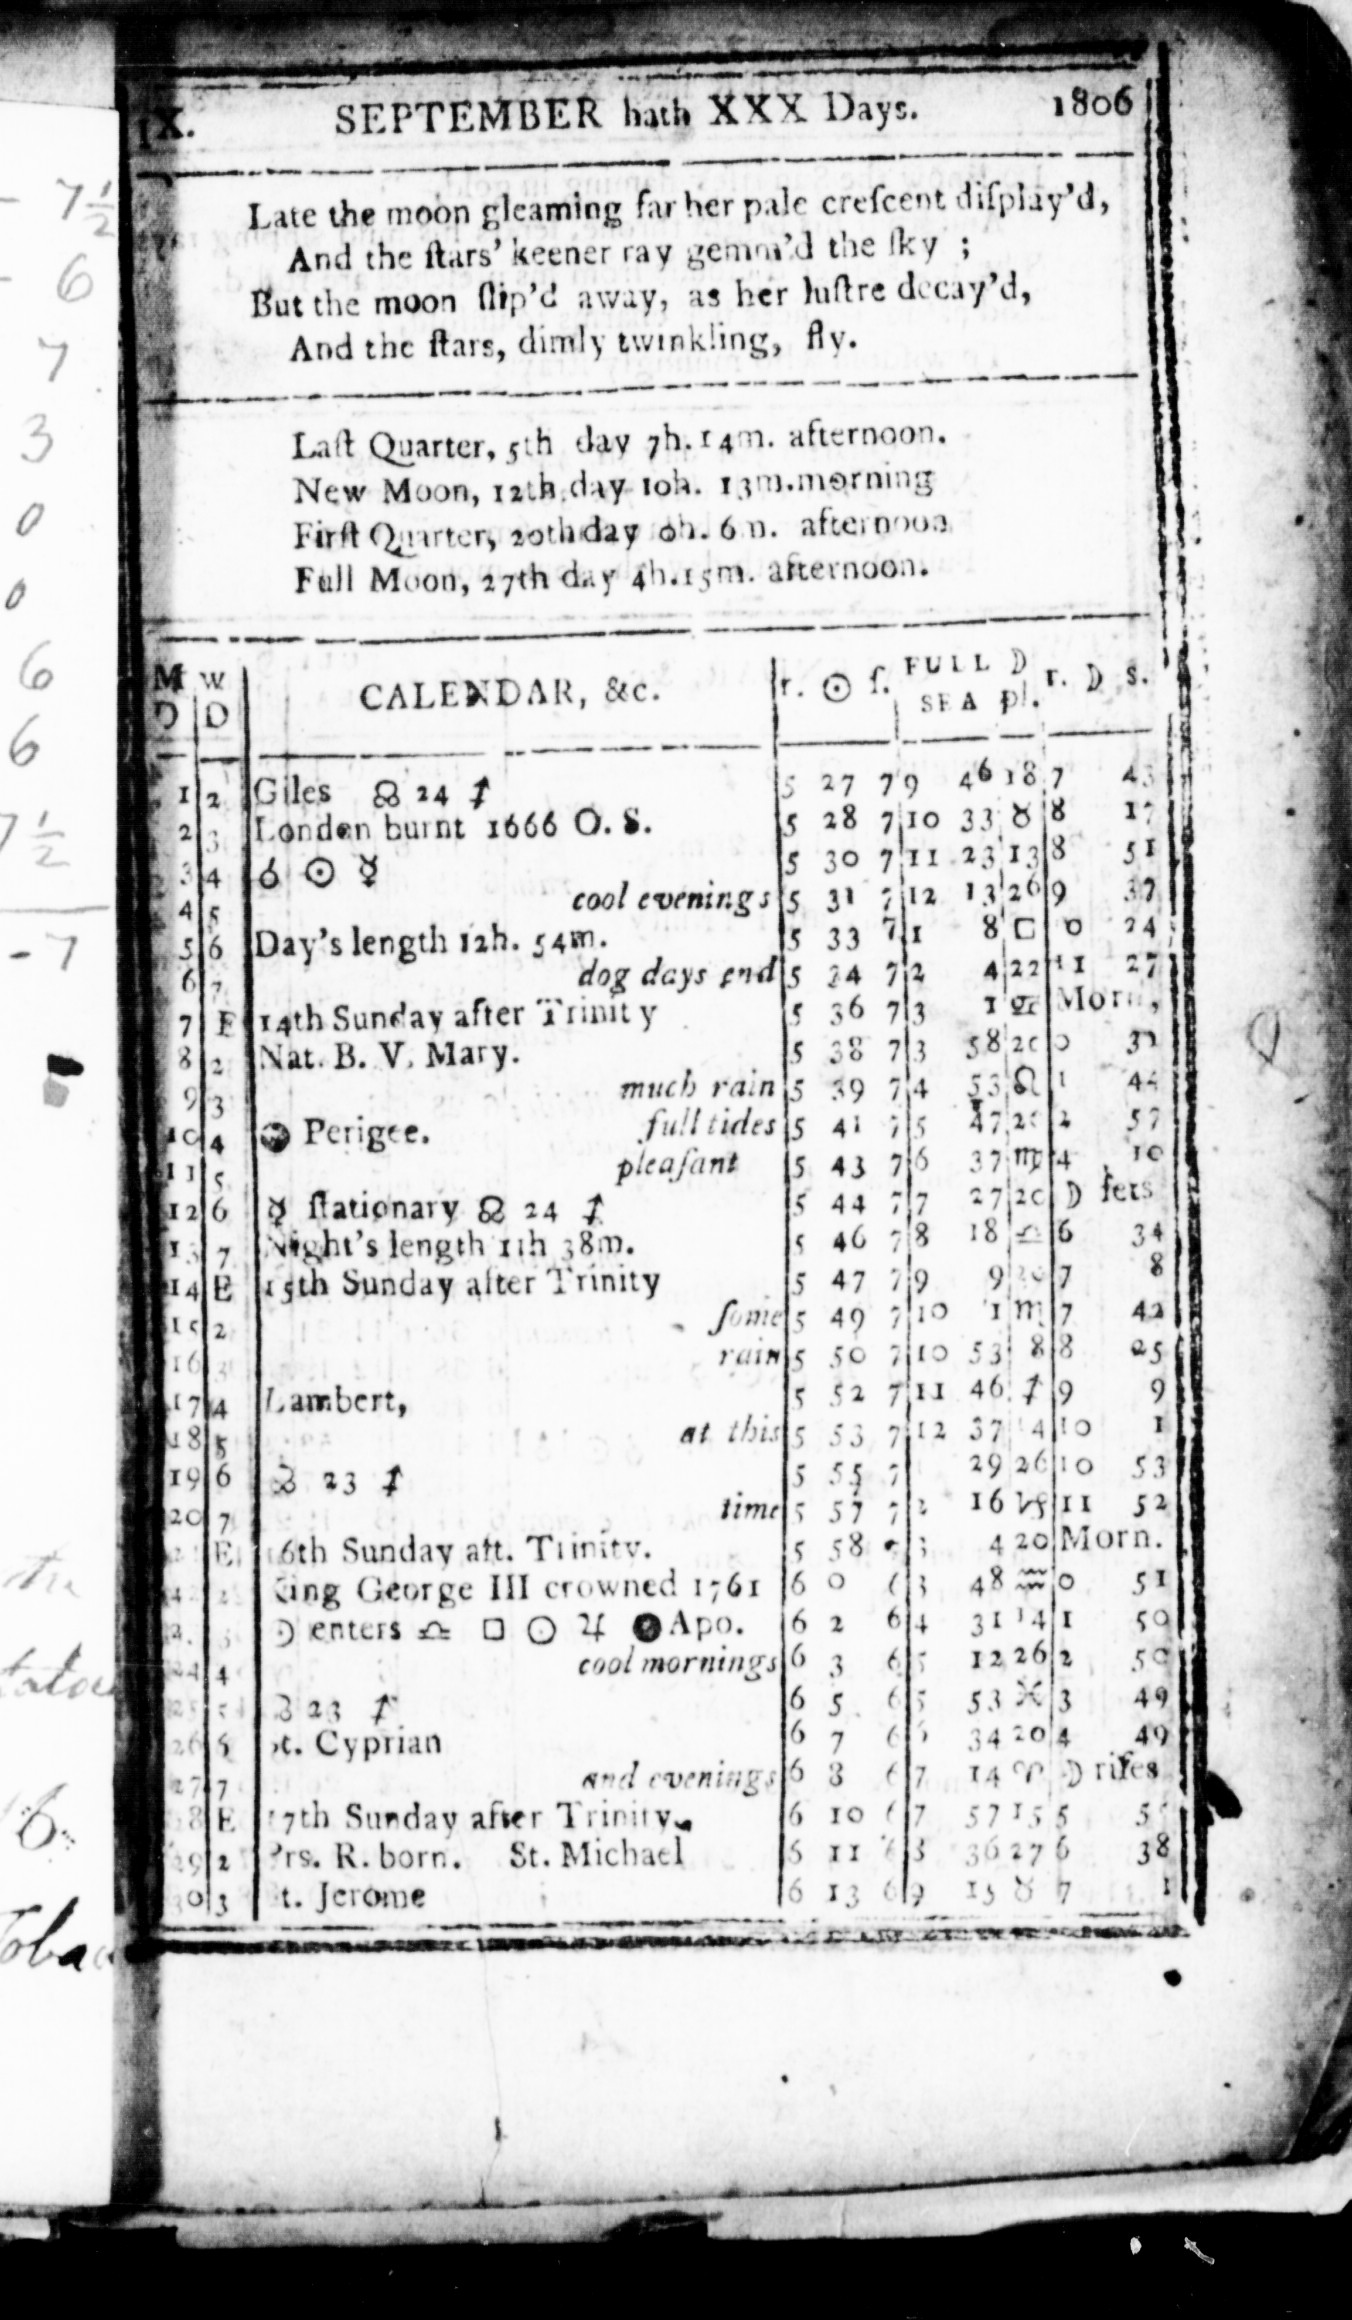 IX. SEPTEMBER hath XXX Days. 1806
Late the moon gleaming far her pale creſcent diſplay'd,
And the ſtars' keener ray gemm'd the ſky ;
But the moon ſlip'd away, as her luſtre decay'd,
And the ſtars, dimly twinkling, fly.
Laſt Quarter, 5th day 7h. 14m. afternoon.
New Moon, 12th day 10h. 13m. morning
Firſt Quarter, 20th day 0h. 6m. afternoon
Full Moon, 27th day 4h. 15m. afternoon.
M D W D CALENDAR, &c. r. ☉ ſ. FULL SEA ☽ pl. r. ☽ s.
1 2 Giles ☊ 24 ♐ 5 27 7 9 46 18 7 43
2 3 London burnt 1666 O. S. 5 28 7 10 33 ♉ 8 17
3 4 ☌ ☉ ☿ 5 30 7 11 23 13 8 51
4 5 cool evenings 5 31 7 12 13 26 9 37
5 6 Day's length 12h. 54m. 5 33 7 1 8 □ 0 24
6 7 dog days end 5 34 7 2 4 22 11 27
7 E 14th Sunday after Trinity 5 36 7 3 1 ♋ Morn,
8 2 Nat. B. V. Mary. 5 38 7 3 58 20 0
9 3 much rain 5 39 7 4 53 ♌ 1 44
10 4 Perigee. full tides 5 41 7 5 47 20 2 57
11 5 pleaſant 5 43 7 6 37 ♍ 4 10
12 6 ☿ ſtationary ☊ 24 ♐ 5 44 7 7 27 20 ☽ ſets
13 7 Night's length 11h 38m. 5 46 7 8 18 ♎ 6 34
14 E 15th Sunday after Trinity 5 47 7 9 9 20 7 8
15 2 ſome 5 49 7 10 1 ♏ 7 42
16 3 rain 5 50 7 10 53 8 8 25
17 4 Lambert, 5 52 7 11 46 ♐ 9 9
18 5 at this 5 53 7 12 37 14 10 1
19 6 ☊ 23 ♐ 5 55 7 29 26 10 53
20 7 time 5 57 7 2 16 ♑ 11 52
E 16th Sunday aft. Trinity. 5 58 3 4 20 Morn.
King George III crowned 1761 6 0 6 3 48 ♒ 0 51
☽ enters ♎ □ ☉ ♃ Apo. 6 2 6 4 31 14 1 50
24 4 cool mornings 6 3 6 5 12 26 2 50
25 5 ☊ 23 ♐ 6 5 6 5 53 ♓ 3 49
26 6 St. Cyprian 6 7 6 6 34 20 4 49
27 7 and evenings 6 8 6 7 14 ♈ ☽ riſes
28 E 17th Sunday after Trinity. 6 10 6 7 57 15 5
29 2 Prs. R. born. St. Michael 6 11 6 8 36 27 6 38
30 3 St. Jerome 6 13 6 9 15 ♉ 7 1
- 7½
- 6
7
3
0
0
6
6
7½
- 7